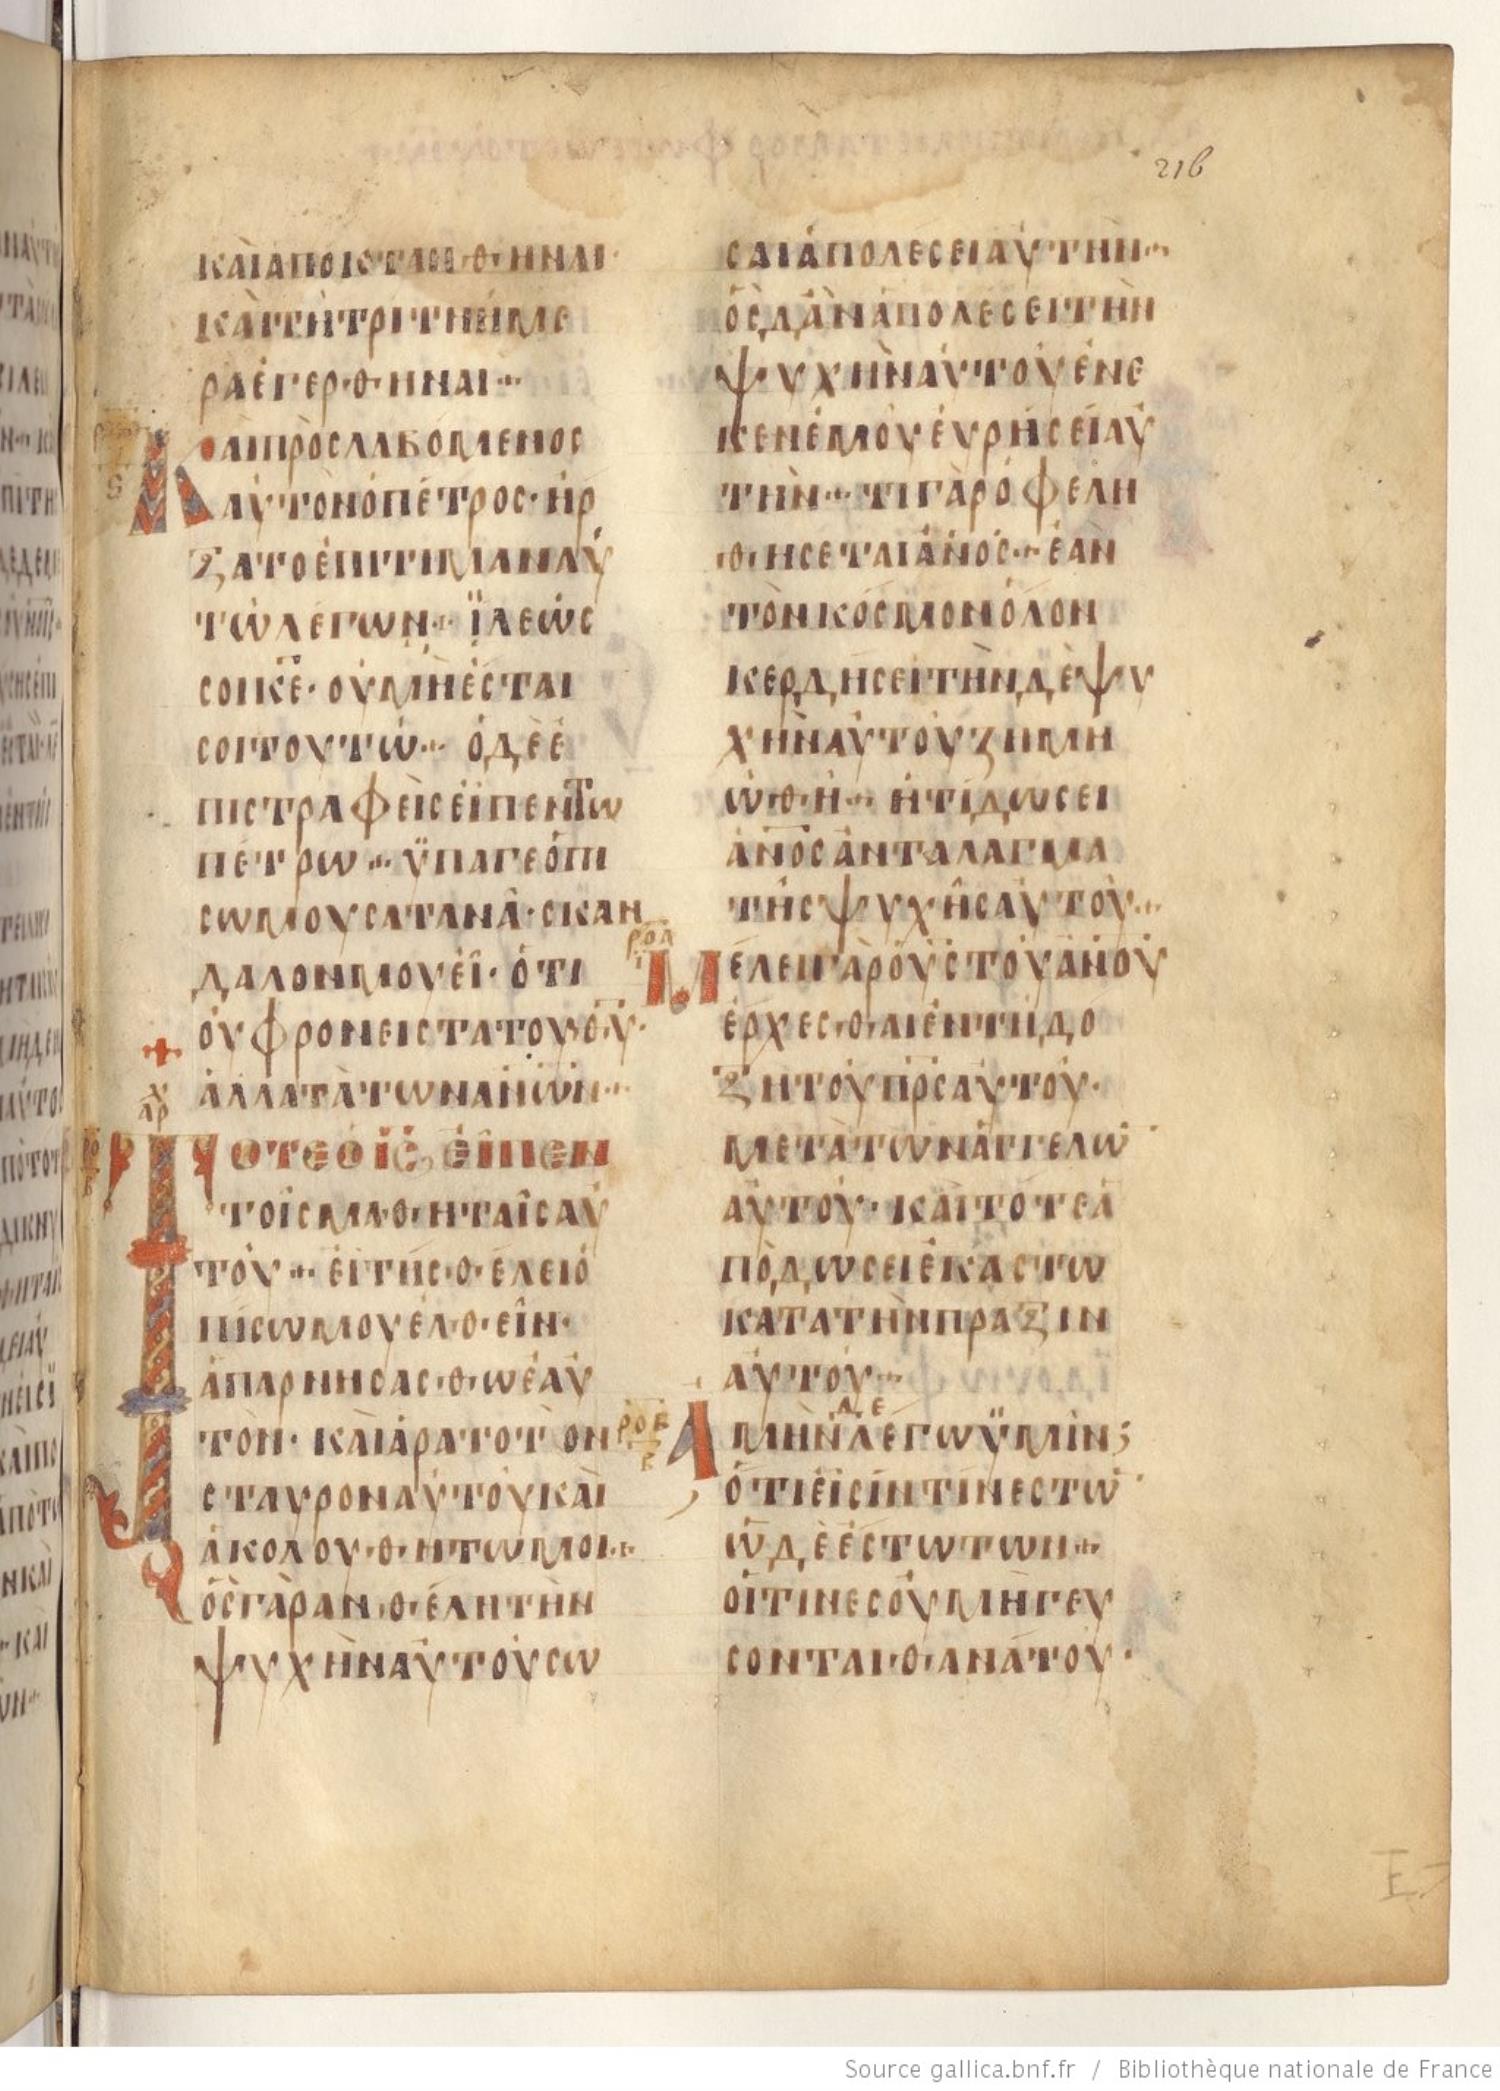 216
ΚΑὶΑΠΟΚΤΑΝΘΗΝΑΙ·
ΚΑὶΤΗ ΤΡΙΤΗ ἡΜΕ
ΡΑ ἐΓΕΡΘΗΝΑΙ··
ΚΑΙ ΠΡΟΣΛΑΒΟΜΕΝΟΣ
ΑΥΤΟΝ ὁ ΠΕΤΡΟΣ· ἠΡ
ΞΑΤΟ ἐΠΙΤΙΜΑΝ ΑΥ
ΤῶΛΕΓΩΝ·· ΪΛΕΩΣ
ΣΟΙ Κ̅Ε̅· ΟΥ ΜΗ ἐΣΤΑΙ
ΣΟΙ ΤΟΥΤΩ·· ὁ ΔΕ ἐ
ΠΙΣΤΡΑΦΕΙΣ ΕἶΠΕΝ ΤΩ
ΠΕΤΡΩ·· ΫΠΑΓΕ ὀΠΙ
ΣΩ ΜΟΥ ΣΑΤΑΝΑ· ΣΚΑΝ
ΔΑΛΟΝ ΜΟΥ Εἶ· ὅΤΙ
ΟΥ ΦΡΟΝΕΙΣ ΤΑ ΤΟΥ Θ̅Υ̅·
ἀΛΛΑ ΤΑ ΤΩΝ Α̅Ν̅Ω̅Ν̅··
ΤΟΤΕ ὁ Ι̅Σ̅ ΕἶΠΕΝ
ΤΟΙΣ ΜΑΘΗΤΑΙΣ ΑΥ
ΤΟΥ·· ΕἴΤΗΣ ΘΕΛΕΙ ὀ
ΠΙΣΩ ΜΟΥ ἐΛΘΕΙΝ·
ἀΠΑΡΝΗΣΑΣΘΩ ἑΑΥ
ΤΟΝ· ΚΑΙ ἀΡΑΤΟ ΤΟΝ
ΣΤΑΥΡΟΝ ΑΥΤΟΥ ΚΑΙ
ἀΚΟΛΟΥΘΗΤΩ ΜΟΙ··
ὃΣ ΓΑΡ ΑΝ ΘΕΛΗ ΤΗΝ
ΨΥΧΗΝ ΑΥΤΟΥ ΣΩ
ΣΑΙ ἀΠΟΛΕΣΕΙ ΑΥΤΗΝ··
ὃΣ Δ' ἂΝ ἀΠΟΛΕΣΕΙ ΤΗΝ
ΨΥΧΗΝ ΑΥΤΟΥ ἕΝΕ
ΚΕΝ ἐΜΟΥ ΕΥΡΗΣΕΙ ΑΥ
ΤΗΝ·· ΤΙ ΓΑΡ ΟΦΕΛΗ
ΘΗΣΕΤΑΙ Α̅Ν̅Ο̅Σ̅·· ἐΑΝ
ΤΟΝ ΚΟΣΜΟΝ ὅΛΟΝ
ΚΕΡΔΗΣΕΙ ΤΗΝ ΔΕ ΨΥ
ΧΗΝ ΑΥΤΟΥ ΖΗΜΗ
ΩΘΗ·· Η ΤΙ ΔΩΣΕΙ
Α̅Ν̅Ο̅Σ̅ ἀΝΤΑΛΑΓΜΑ
ΤΗΣ ΨΥΧΗΣ ΑΥΤΟΥ··
ΡΟΑ
ΜΕΛΕΙ ΓΑΡ Ο ΥΣ ΤΟΥ Α̅Ν̅Ο̅Υ̅
ἐΡΧΕΣΘΑΙ ἐΝ ΤΗ ΔΟ
ΞΗ ΤΟΥ Π̅Ρ̅Σ̅ ΑΥΤΟΥ·
ΜΕΤΑ ΤΩΝ ΑΓΓΕΛΩ̅
ΑΥΤΟΥ· ΚΑΙ ΤΟΤΕ Α
ΠΟΔΩΣΕΙ ἑΚΑΣΤΩ
ΚΑΤΑ ΤΗΝ ΠΡΑΞΙΝ
ΑΥΤΟΥ··
ΡΟΒ
Β
ΔΕ
ΑΜΗΝ ΛΕΓΩ ΫΜΙΝ;
ὅΤΙ ΕἰΣΙΝ ΤΙΝΕΣ ΤΩ̅
ὧΔΕ ἑΣΤΩΤΩΝ··
ΟΙΤΙΝΕΣ ΟΥ ΜΗ ΓΕΥ
ΣΟΝΤΑΙ ΘΑΝΑΤΟΥ·
Source gallica.bnf.fr / Bibliothèque nationale de France